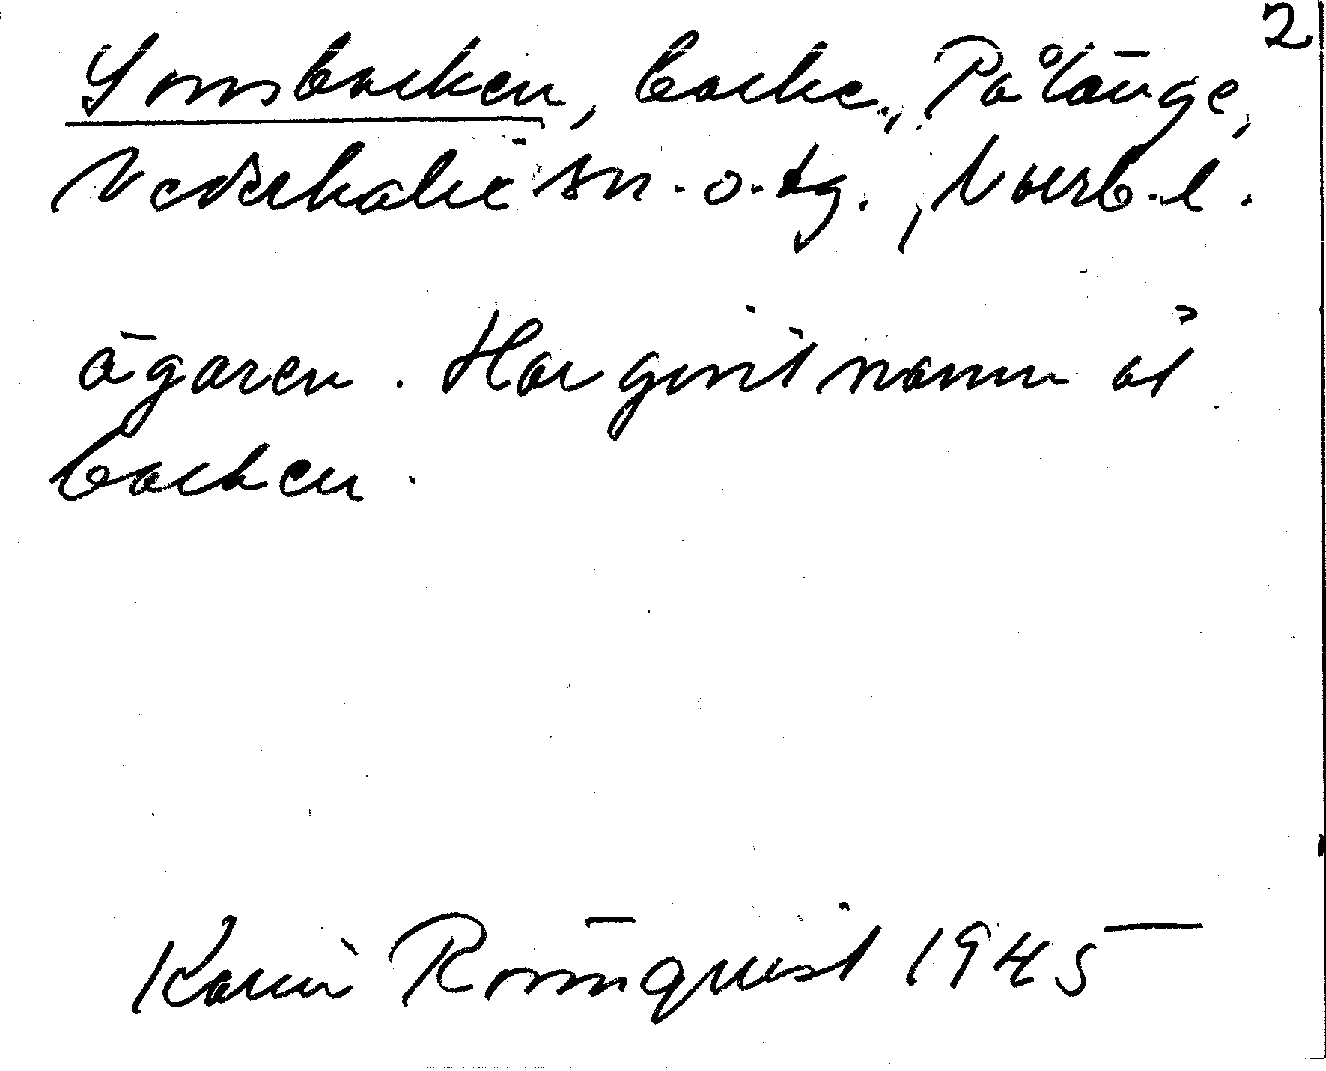 2
Somsbacken, backe, Pålänge,
Nederkalix sn. o. tg., Norrb. l.
ägaren. Har givit namn åt
backen.
Karin Rönnquist 1945